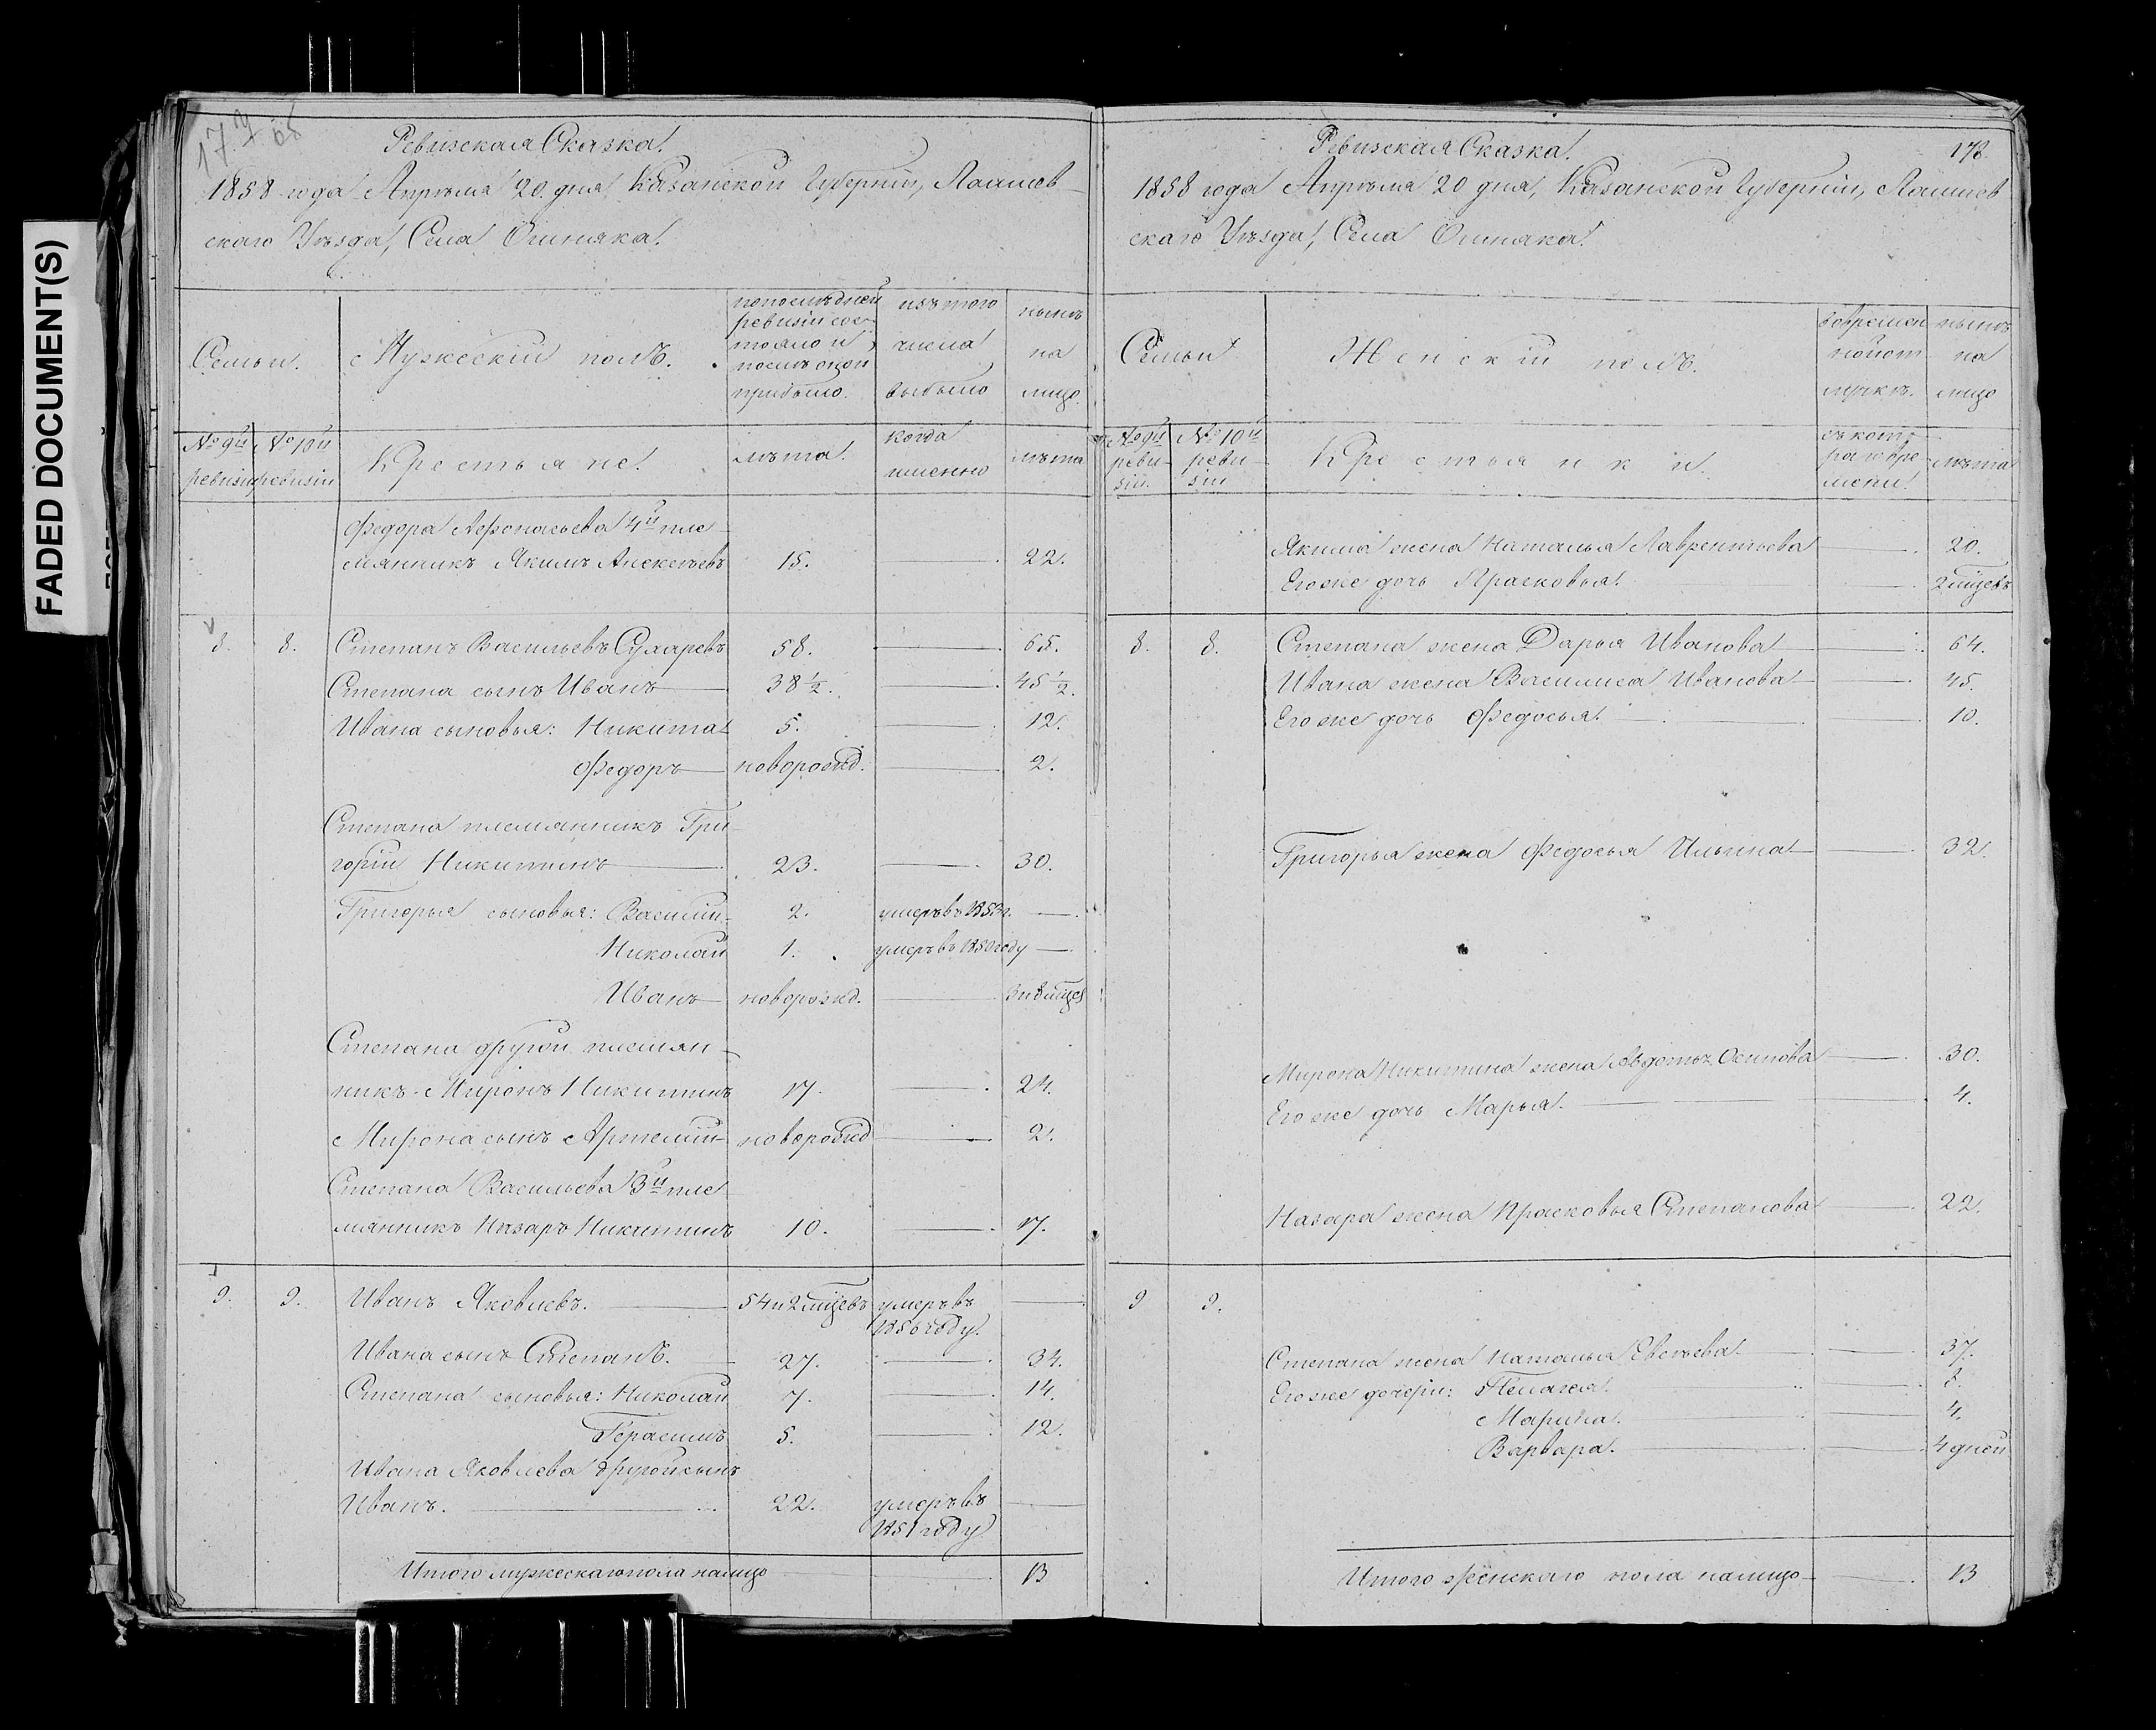 FADED DOCUMENT(S)
Ревизская Сказка.
1858 года Апрѣля 20. дня, Казанской Губерніи, Лаишев-
скаго Уѣзда, Села
Семьи.
Мужескій полъ.
по послѣдней
ревизіи сос-
тояло и
послѣ оной
прибыло.
изъ того
числа
выбыло
нынѣ
на
лицо.
№ 9й
ревизіи
№ 10й
ревизіи
Крестьяне.
лѣта.
когда
именно
лѣта
Федора Афонасьева 4й пле-
мянникъ Якимъ Алексѣевъ 15. 22.
8. 8. Степанъ Васильевъ Сухаревъ 58. 65.
Степана сынъ Иванъ 38 1/2. 45 1/2.
Ивана сыновья: Никита 5. 12.
Федоръ новорожд. 2.
Степана племянникъ Гри-
горій Никитинъ 23. 30.
Григорья сыновья: Василій 2. умеръ въ 1853 г.
Николай 1. умеръ въ 1850 году
Иванъ новорожд.
Степана другой племян-
никъ Миронъ Никитинъ 17. 24.
Мирона сынъ Артемій новорожд 2.
Степана Васильева 3й пле-
мянникъ Назаръ Никитинъ 10. 17.
9. 9. Иванъ Яковлевъ. 54 и 2 мцевъ умеръ въ
1856 году.
Ивана сынъ Степанъ. 27. 34.
Степана сыновья: Николай 7. 14.
Герасимъ 5. 12.
Ивана Яковлева другой сынъ
Иванъ. 22. умеръ въ
1851 году
Итого мужескаго пола налицо 13
Ревизская Сказка.
178.
1858 года Апрѣля 20 дня, Казанской Губерніи, Лаишев
скаго Уѣзда, Села
Семьи
Женскій полъ.
во времен
ной от
лучкѣ.
нынѣ
на
лицо
№ 9й
реви-
зіи.
№ 10й
реви-
зіи
Крестьянки.
съ кот-
раго вре-
мени.
лѣта
Якима жена Наталья Лаврентьева 20.
Его же дочь Прасковья. 2 мцевъ
8. 8. Степана жена Дарья Иванова 64.
Ивана жена Василиса Иванова 45.
Его же дочь Федосья. 10.
Григорья жена Федосья Ильина 32.
Мирона Никитина жена Авдотья Осипова 30.
Его же дочь Марья. 4.
Назара жена Прасковья Степанова 22.
9 9.
Степана жена Наталья Евсѣева 37.
Его же дочери: Пелагея. 8.
Марина. 4.
Варвара. 4 дней
Итого женскаго пола налицо 13